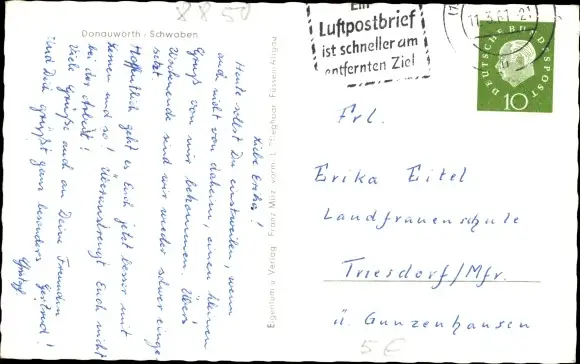 Donauwörth - Schwaben
88 50
Liebe Erika!
Heute sollst Du einstweilen, wenn
auch nicht von daheim, einen kleinen
Gruß von mir bekommen. Übers
Wochenende sind wir wieder schwer einge-
setzt.
Hoffentlich geht es Euch jetzt besser mit
Können und so! Überanstrengt Euch nicht
bei der Arbeit!
Viele Grüße auch an Deine Freundin
und Dich grüßt ganz besonders Gertrud!
Eigentum u. Verlag Franz
Ein
Luftpostbrief
ist schneller am
entfernten Ziel
11.3.61.-21
DEUTSCHE BUNDESPOST
10
Frl.
Erika Eitel
Landfrauenschule
Triesdorf/Mfr.
ü. Gunzenhausen
5€